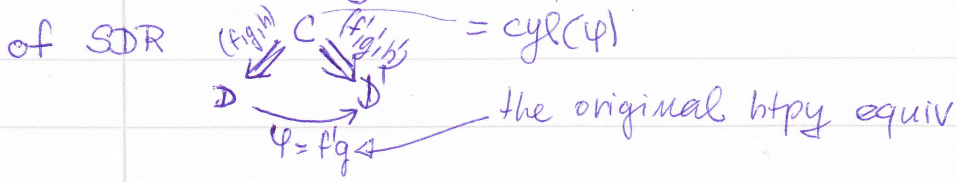 of SDR (f,g,h) C (f',g',h') = cyl(φ)
D D'
the original htpy equiv
φ = f'g